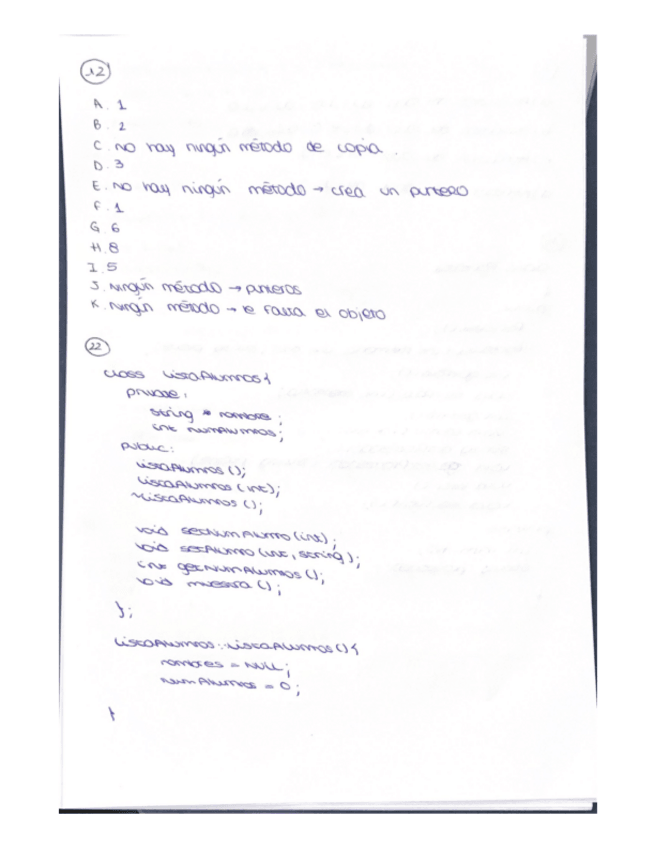 12
A. 1
B. 2
C. no hay ningún método de copia.
D. 3
E. No hay ningún método → crea un puntero
F. 1
G. 6
H. 8
I. 5
J. ningún método → punteros
K. ningún método → le falta el objeto
22
class ListaAlumnos {
private:
string * nombre;
int numAlumnos;
public:
ListaAlumnos ();
ListaAlumnos (int);
~ListaAlumnos ();
void setNumAlumno (int);
void setAlumno (int, string);
int getNumAlumnos ();
void muestra ();
};
ListaAlumnos::ListaAlumnos () {
nombres = NULL;
numAlumnos = 0;
}